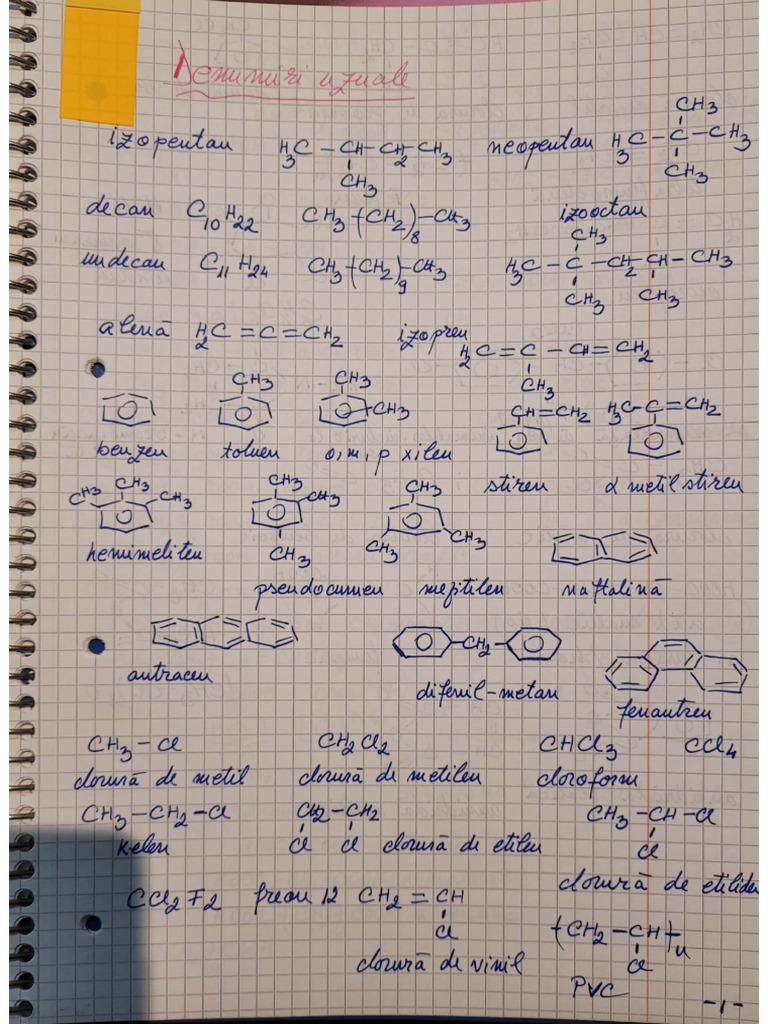 Denumiri uzuale
izopentan H3C-CH-CH2-CH3 neopentan H3C-C-CH3
CH3 CH3 CH3
decan C10H22 CH3-(CH2)8-CH3 izooctan
undecan C11H24 CH3-(CH2)9-CH3 H3C-C-CH2-CH-CH3
CH3 CH3 CH3
alenă H2C=C=CH2 izopren H2C=C-CH=CH2
CH3
CH3 CH3 CH3 CH=CH2 H3C-C=CH2
benzen toluen o,m,p xilen stiren α metil stiren
CH3 CH3 CH3 CH3 CH3 CH3 CH3 CH3 CH3
hemimeliten pseudocumen mezitilen naftalină
CH2
antracen difenil-metan fenantren
CH3-Cl CH2Cl2 CHCl3 CCl4
clorură de metil clorură de metilen cloroform
CH3-CH2-Cl CH2-CH2 CH3-CH-Cl
Cl Cl Cl
kelen clorură de etilen clorură de etiliden
CCl2F2 freon 12 CH2=CH -(CH2-CH)-n
Cl Cl
clorură de vinil PVC
-1-